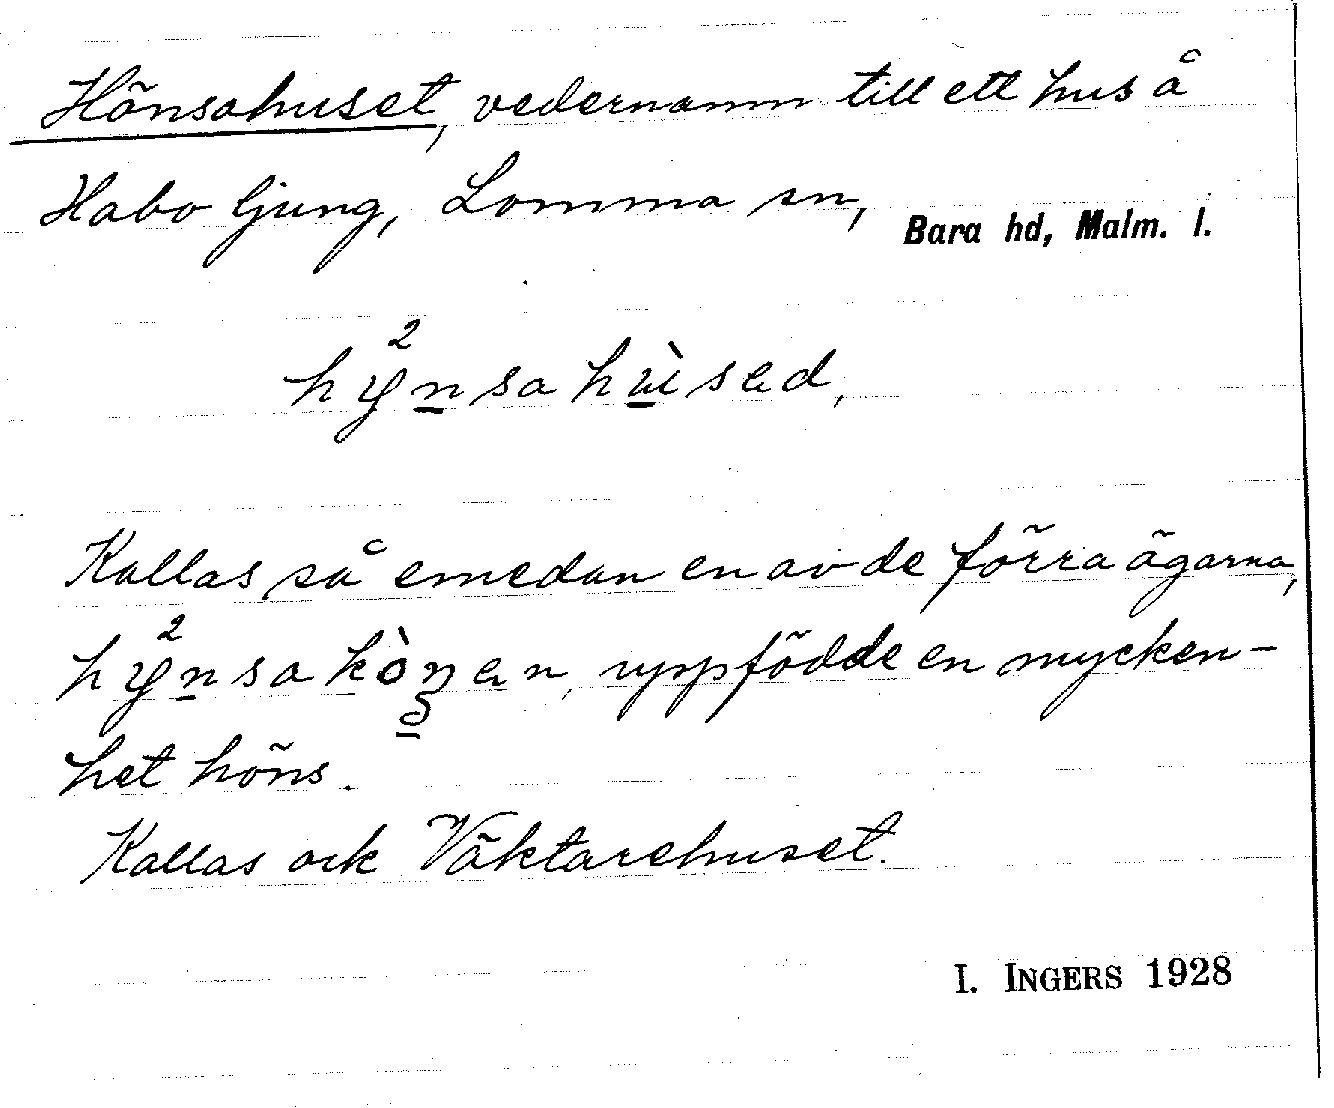 Hönsahuset, vedernamn till ett hus å
Habo ljung, Lomma sn, Bara hd, Malm. l.
hy²nsahùsed,
Kallas så emedan en av de förra ägarna,
hy²nsakòŋen, uppfödde en mycken-
het höns.
Kallas ock Väktarehuset.
I. INGERS 1928